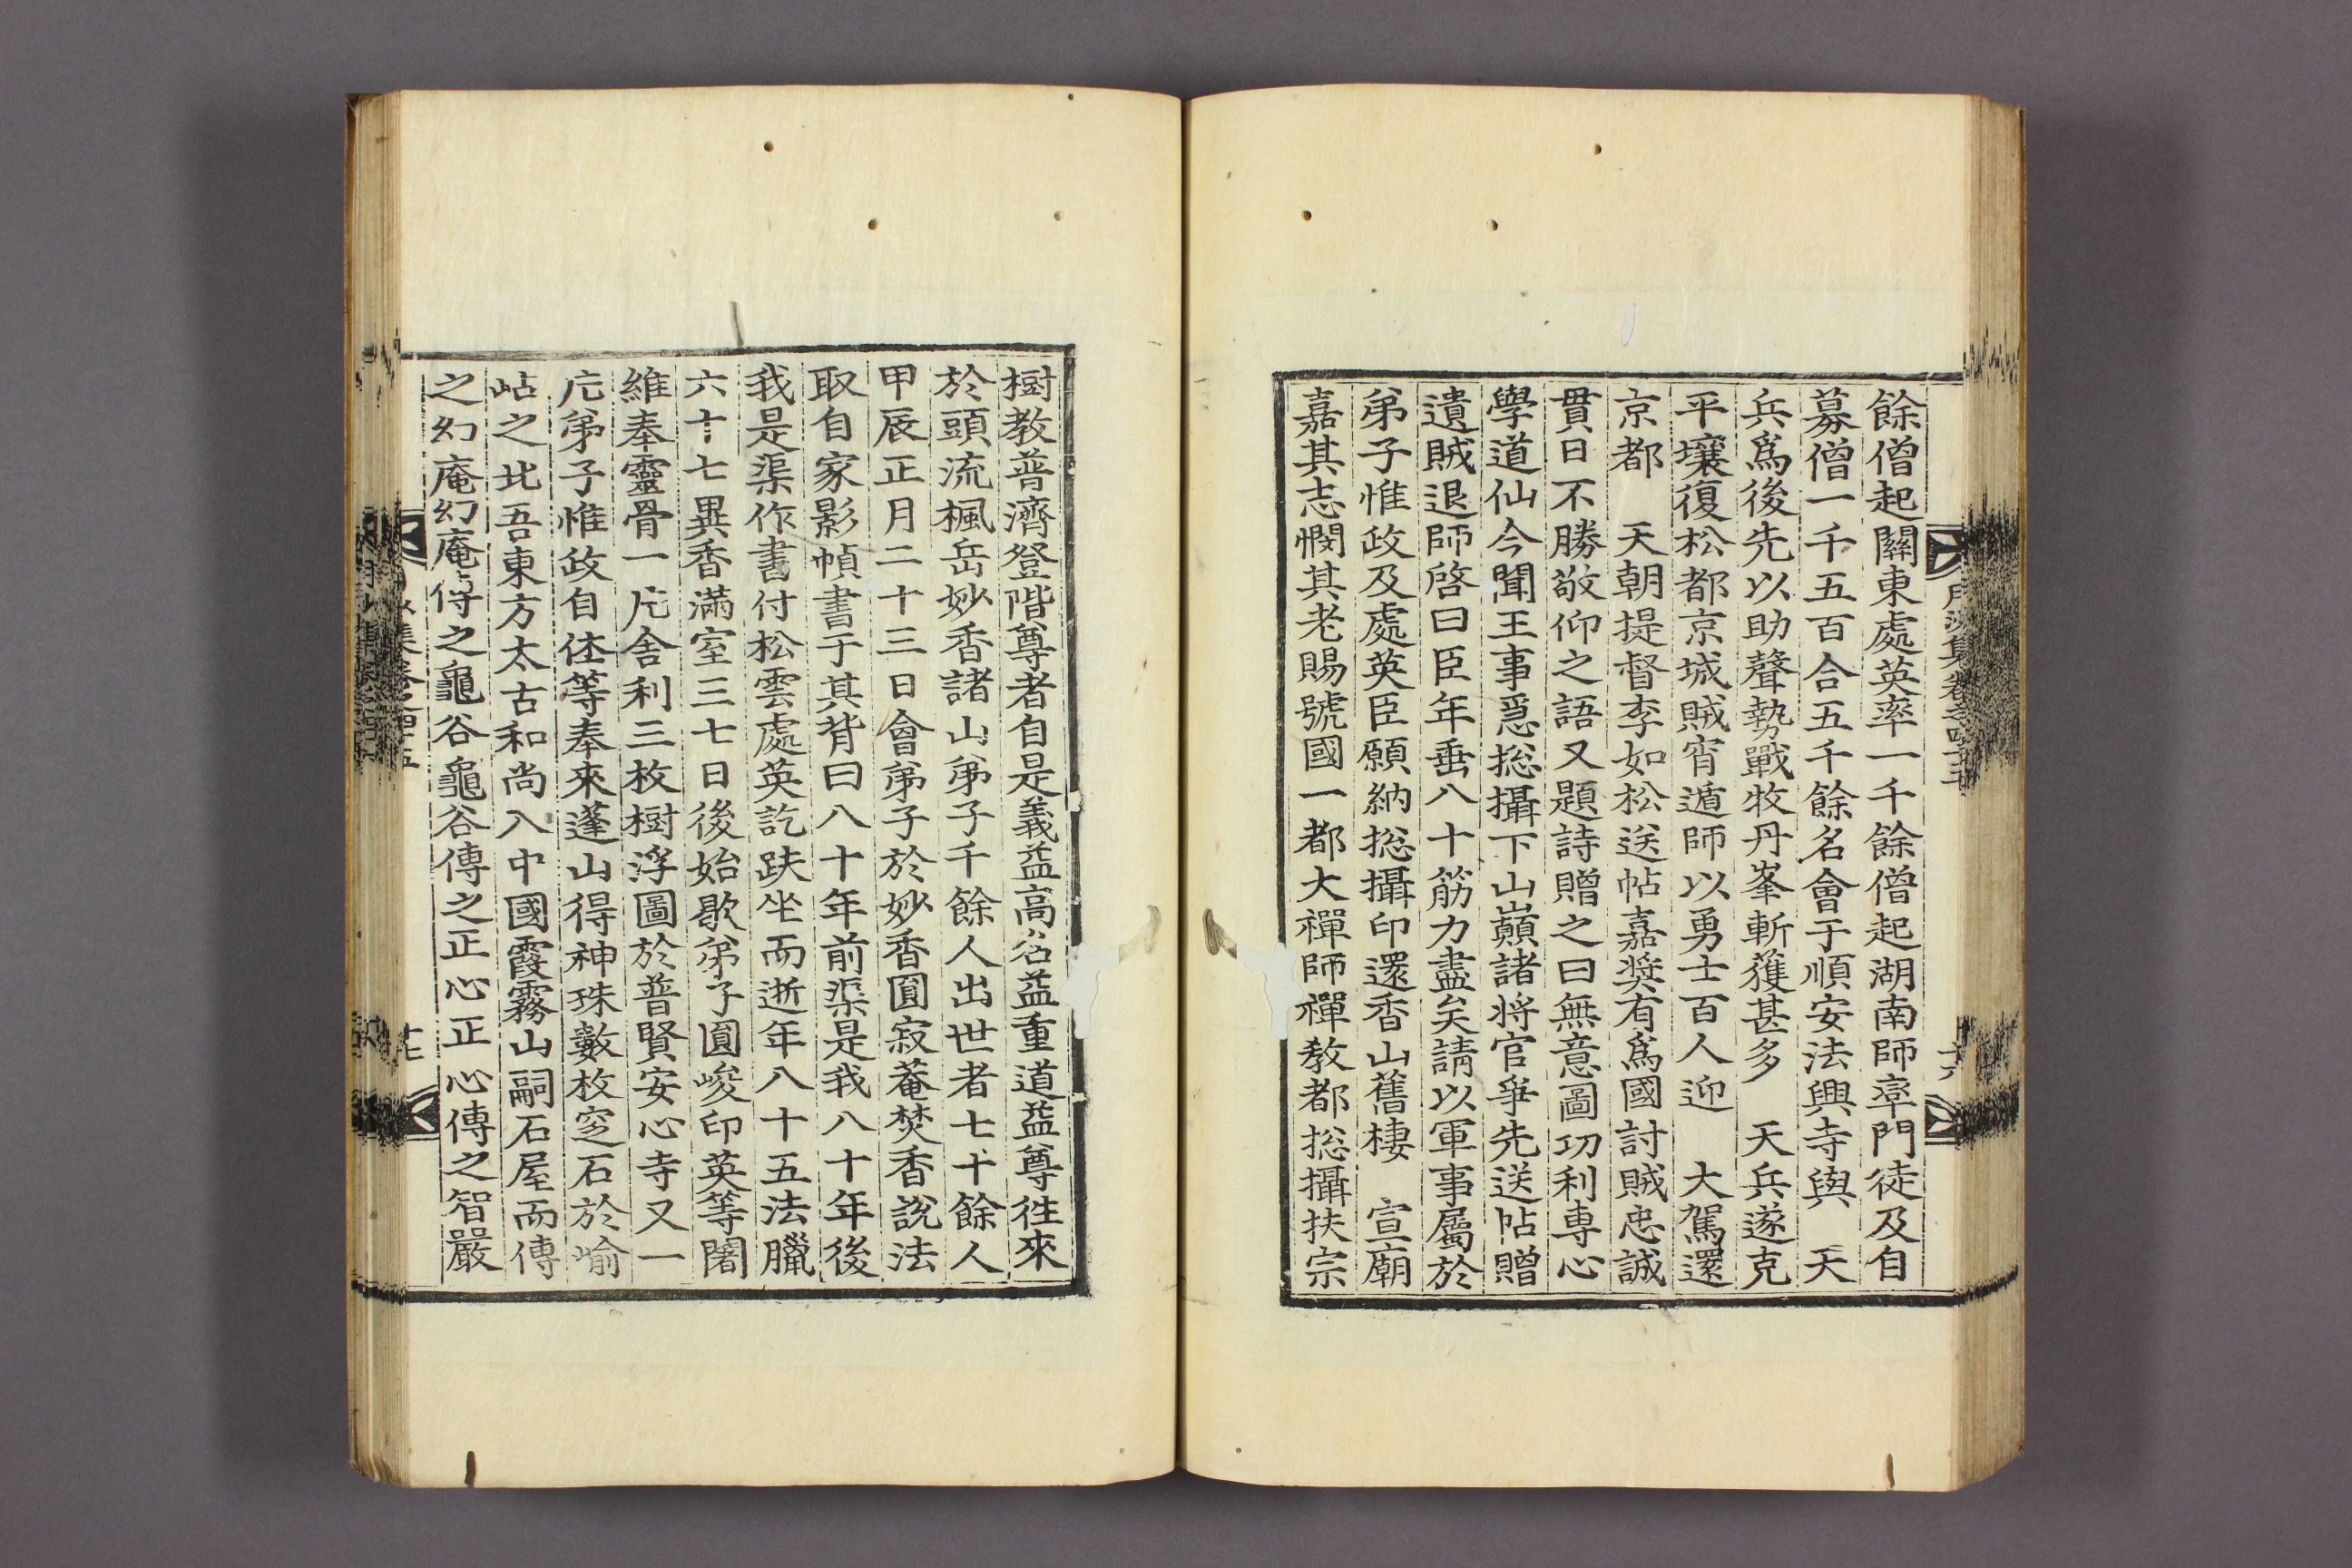 餘僧起關東處英率一千餘僧起湖南師率門徒及自
募僧一千五百合五千餘名會于順安法興寺與　天
兵爲後先以助聲勢戰牧丹峯斬獲甚多　天兵遂克
平壤復松都京城賊宵遁師以勇士百人迎　大駕還
京都　天朝提督李如松送帖嘉奬有爲國討賊忠誠
貫日不勝敬仰之語又題詩贈之曰無意圖功利專心
學道仙今聞王事急捴攝下山巓諸將官爭先送帖贈
遺賊退師啓曰臣年垂八十筋力盡矣請以軍事屬於
弟子惟政及處英臣願納捴攝印還香山舊棲　宣廟
嘉其志憫其老賜號國一都大禪師禪敎都捴攝扶宗
樹教普濟登階尊者自是義益高名益重道益尊徃來
於頭流楓岳妙香諸山弟子千餘人出世者七十餘人
甲辰正月二十三日會弟子於妙香圓寂菴焚香說法
取自家影幀書于其背曰八十年前渠是我八十年後
我是渠作書付松雲處英訖趺坐而逝年八十五法臘
六十七異香滿室三七日後始歇弟子圓峻印英等闍
維奉靈骨一片舍利三枚樹浮圖於普賢安心寺又一
片弟子惟政自休等奉來蓬山得神珠數枚窆石於喩
岾之北吾東方太古和尚入中國霞霧山嗣石屋而傳
之幻庵幻庵傳之龜谷龜谷傳之正心正心傳之智嚴